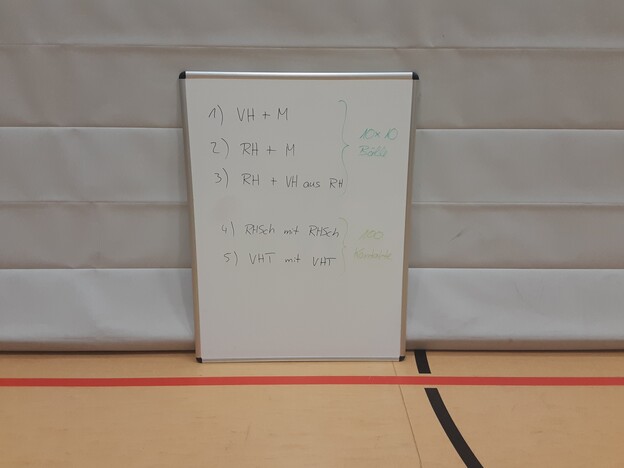 1) VH + M
2) RH + M
3) RH + VH aus RH
10 x 10
Bälle
4) RHSch mit RHSch
5) VHT mit VHT
100